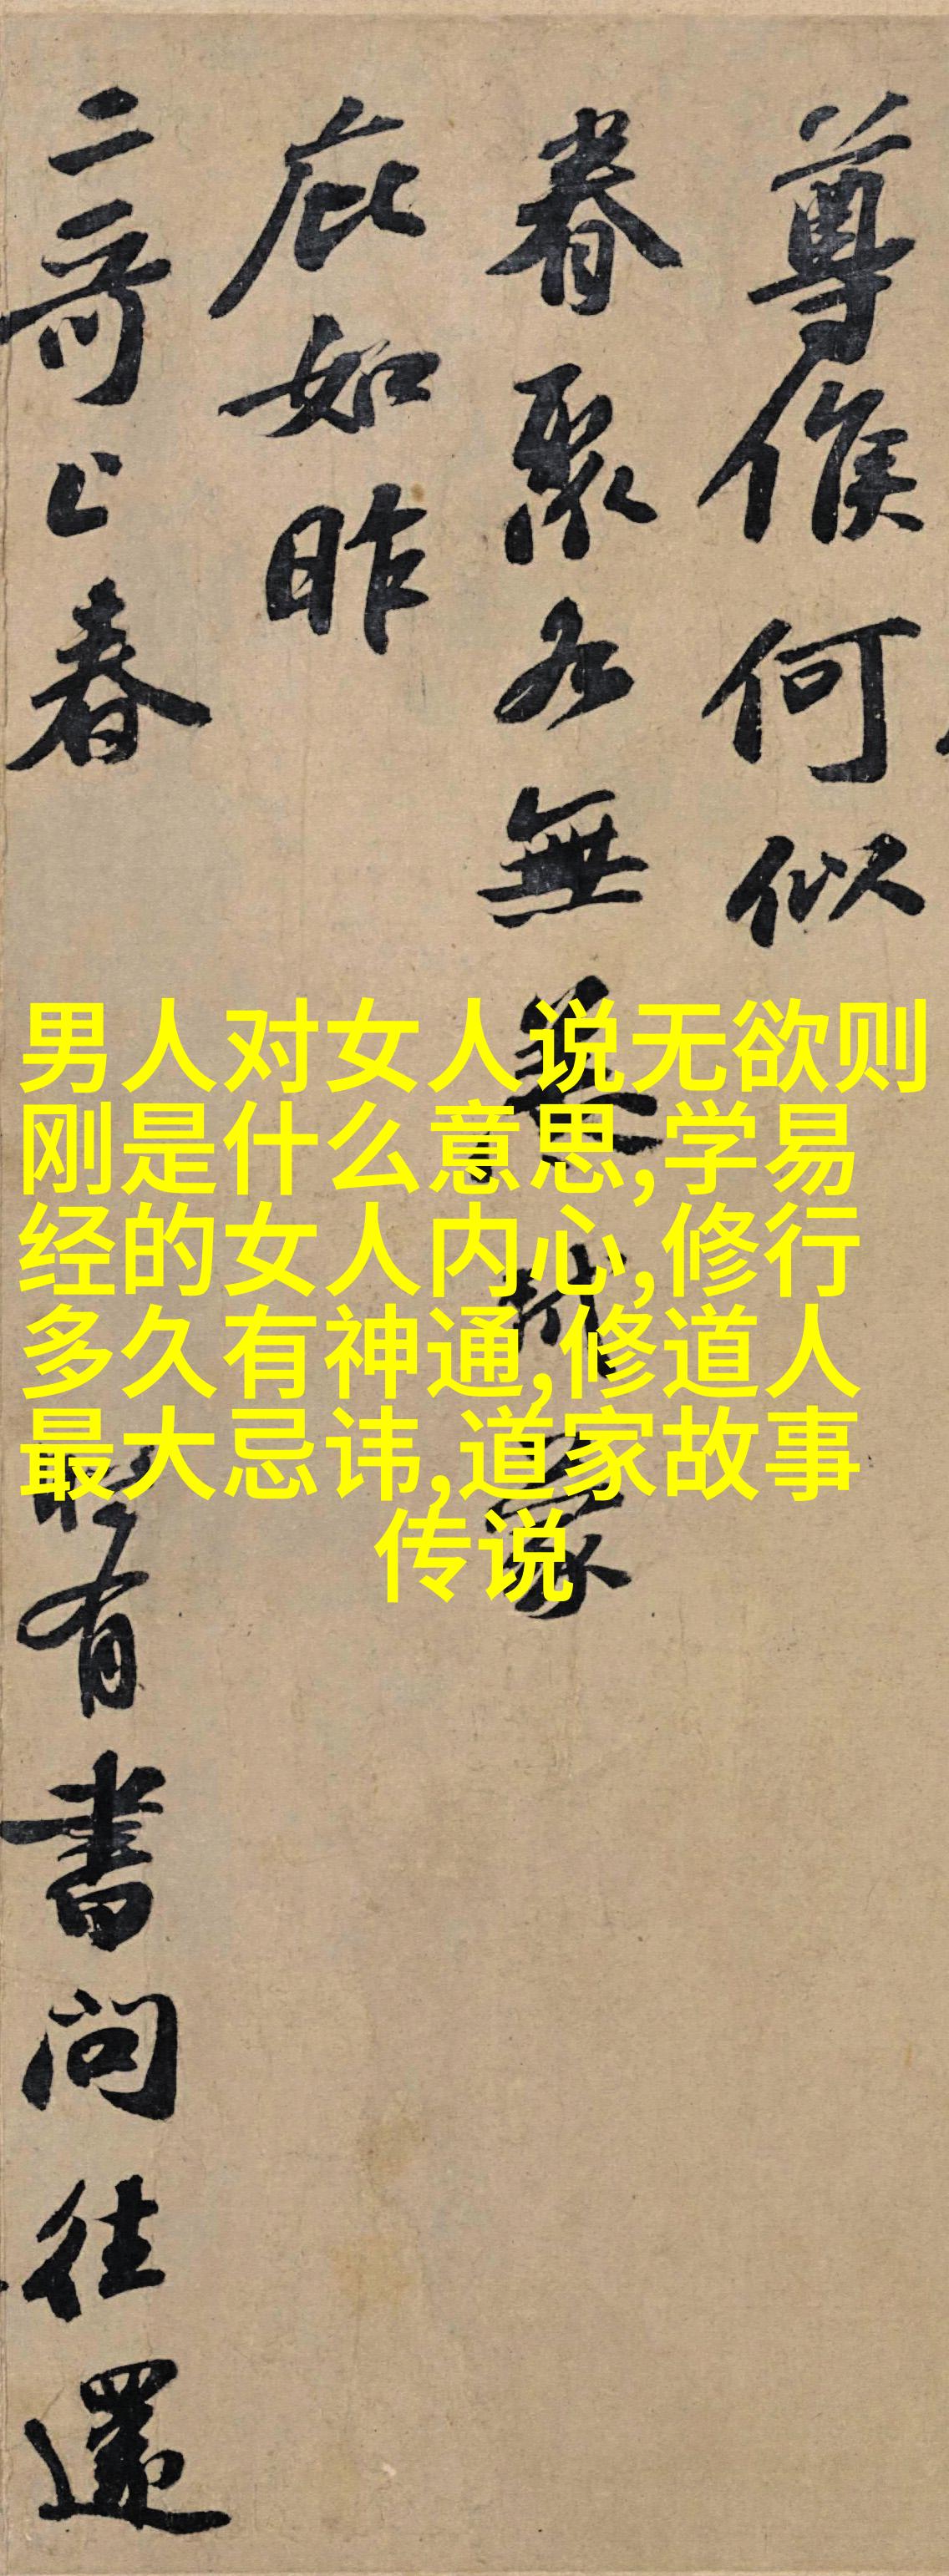 尊候何似
眷聚各無恙挑蒙
庇如昨
二哥上春
有書問往還
男人对女人说无欲则
刚是什么意思,学易
经的女人内心,修行
多久有神通,修道人
最大忌讳,道家故事
传说